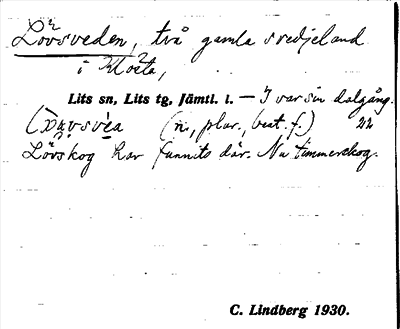 Lövsveden, två gamla svedjeland
i Klösta,
Lits sn, Lits tg, Jämtl. l. — I var sin dalgång.
(n, plur., best. f.) 22
Lövskog har funnits där. Nu timmerskog.
C. Lindberg 1930.